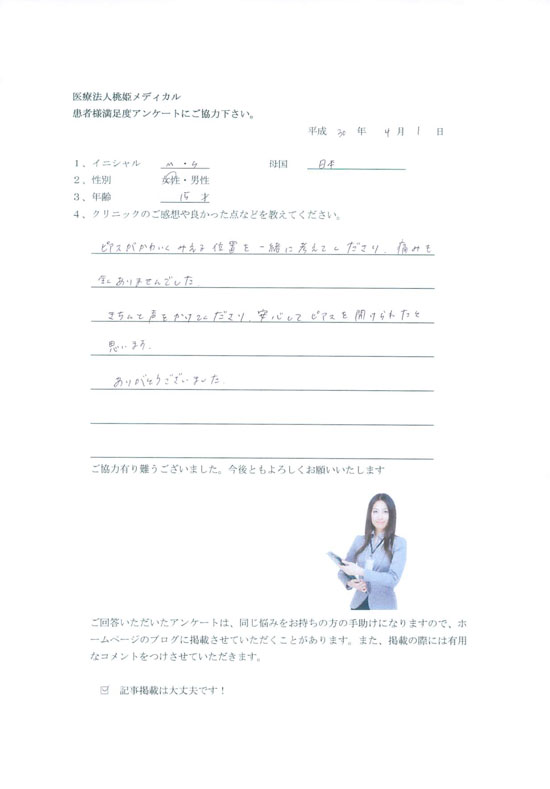 医療法人桃姫メディカル
患者様満足度アンケートにご協力下さい。
平成 30 年 4 月 1 日
1、イニシャル M・G 母国 日本
2、性別 女性・男性
3、年齢 15 才
4、クリニックのご感想や良かった点などを教えてください。
ピアスがかわいくみえる位置を一緒に考えてくださり、痛みも
全くありませんでした。
きちんと声をかけてくださり、安心してピアスを開けられたと
思います。
ありがとうございました。
ご協力有り難うございました。今後ともよろしくお願いいたします
ご回答いただいたアンケートは、同じ悩みをお持ちの方の手助けになりますので、ホ
ームページのブログに掲載させていただくことがあります。また、掲載の際には有用
なコメントをつけさせていただきます。
☑ 記事掲載は大丈夫です！